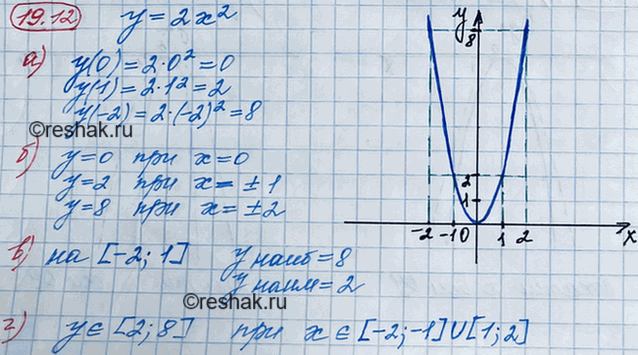 19.12 y = 2x²
а) y(0) = 2·0² = 0
y(1) = 2·1² = 2
y(-2) = 2·(-2)² = 8
©reshak.ru
б) y=0 при x=0
y=2 при x= ±1
y=8 при x= ±2
в) на [-2; 1] y наиб = 8
y наим = 2
©reshak.ru
г) y ∈ [2; 8] при x ∈ [-2; -1] U [1; 2]
y
8
2
1
-2 -1 0 1 2 x